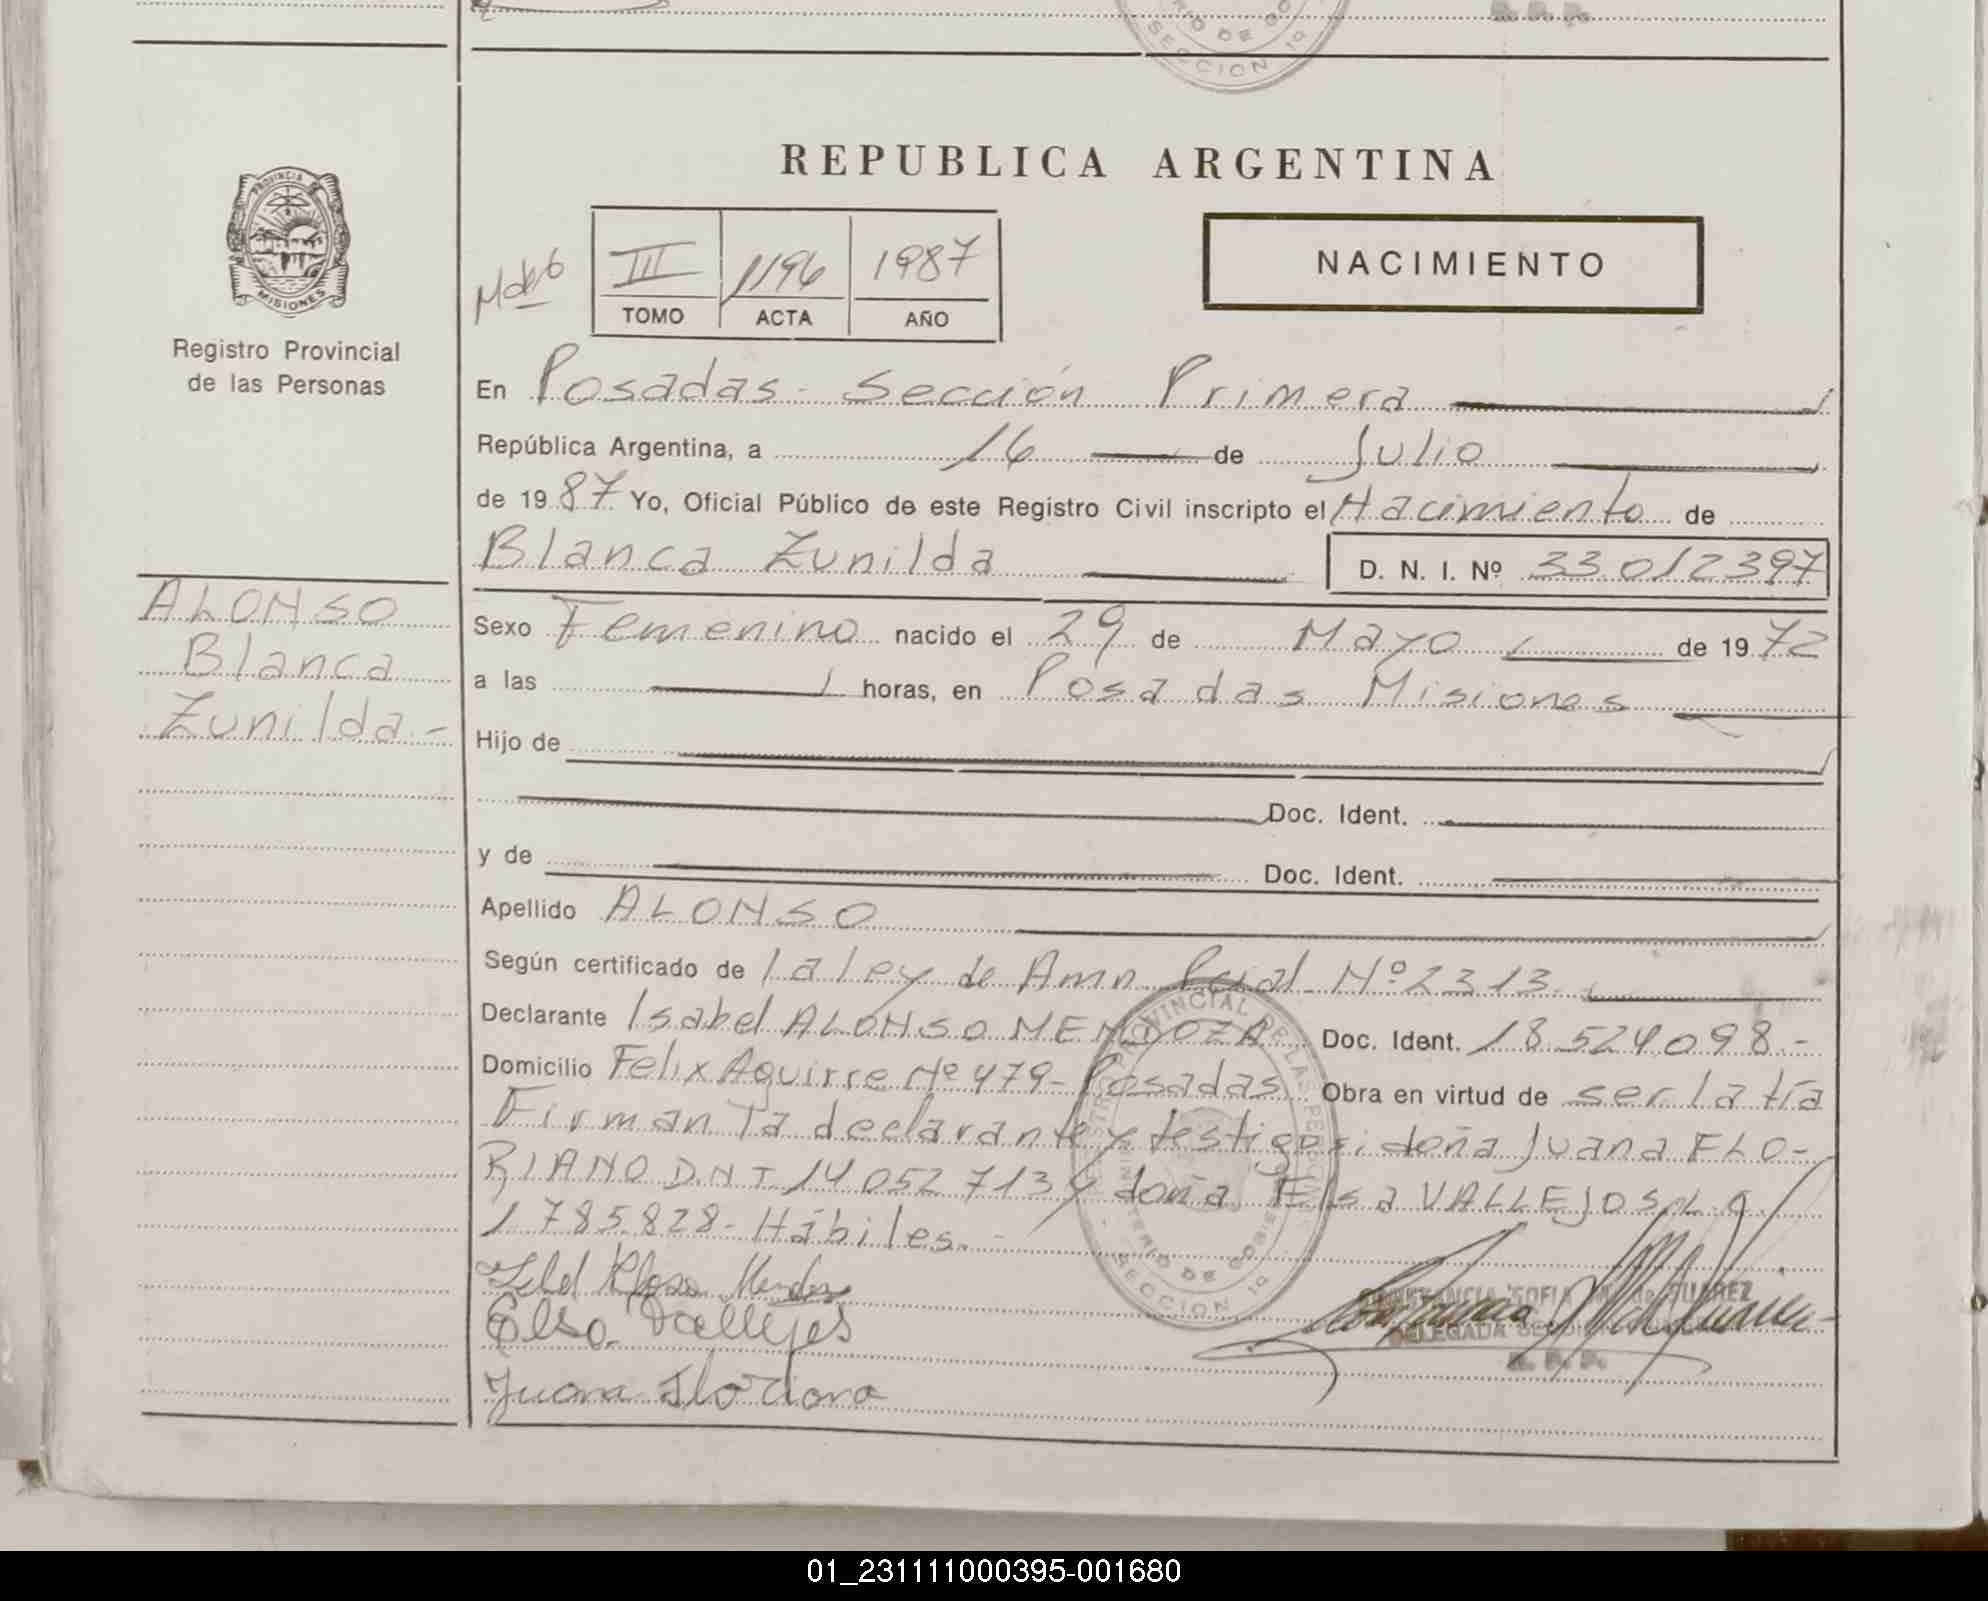 SECCION 1ª
R. P. P.
REPUBLICA ARGENTINA
PROVINCIA DE
MISIONES
Registro Provincial
de las Personas
III 1196 1987
TOMO ACTA AÑO
NACIMIENTO
En Posadas - Sección Primera
República Argentina, a 16 de Julio
de 1987 Yo, Oficial Público de este Registro Civil inscripto el Nacimiento de
Blanca Zunilda D. N. I. Nº 33.012397
ALONSO
Blanca
Zunilda.-
Sexo Femenino nacido el 29 de Mayo de 1972
a las horas, en Posadas Misiones
Hijo de
Doc. Ident.
y de Doc. Ident.
Apellido ALONSO
Según certificado de la ley de Amn. Pcial. Nº 2313.
Declarante Isabel ALONSO MENDOZA Doc. Ident. 18.524.098.-
Domicilio Felix Aguirre Nº 479- Posadas Obra en virtud de ser la tía
Firman la declarante y testigos: doña Juana FLO-
RIANO D.N.I 14.052.713 y doña Elsa VALLEJOS L.C.
1.785.828- Hábiles.-
Elsa Vallejos
Juana Floriano
CONSTANCIA SOFIA DE SUAREZ
DELEGADA SECCION
R. P. P.
REGISTRO PROVINCIAL DE LAS PERSONAS
MINISTERIO DE GOBIERNO
SECCION 1ª
01_231111000395-001680